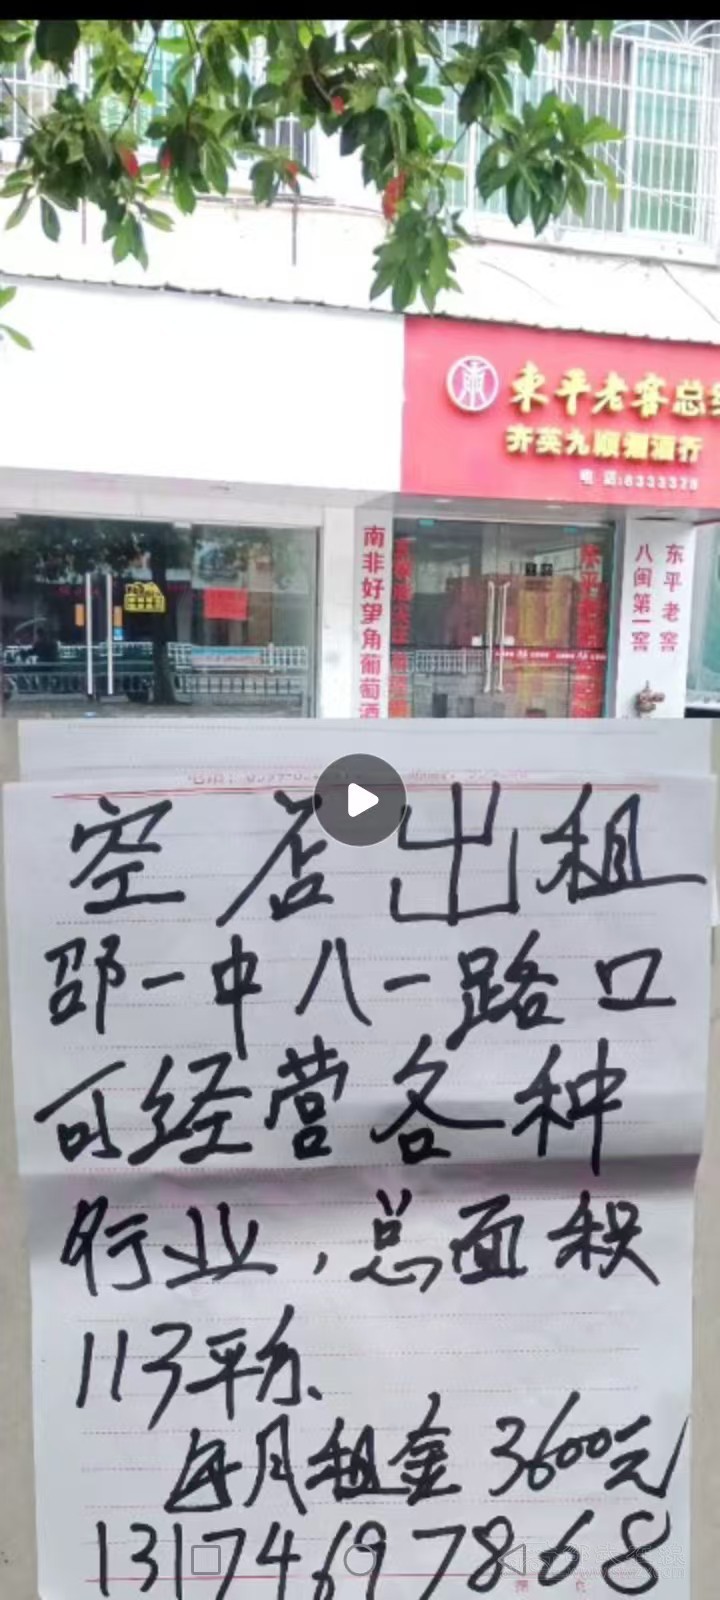 東平老窖总
齐英九顺酒行
电话:6333329
南非好望角葡萄酒
八闽第一窖
东平老窖
空店出租
邵一中八一路口
可经营各种
行业，总面积
113平方、
每月租金3600元
13174697868